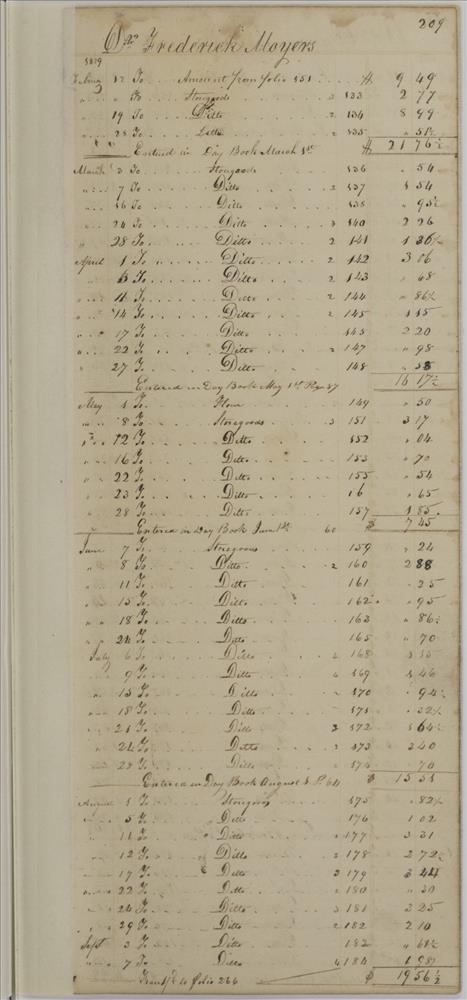 209
Dr. Frederick Moyers
1819
Febuay 12 To Amount from folio 131 $ 9 49
" " 18 To Storegoods 2 133 2 77
" " 19 To Ditto 2 134 8 99
" " 28 To Ditto 2 135 " 51½
Entered in Day Book March 1st $ 21 76½
March 3 To Storegoods 136 " 54
" " 7 To Ditto 2 137 1 54
" " 16 To Ditto 138 " 93½
" " 24 To Ditto 3 140 2 26
" " 28 To Ditto 2 141 1 36½
April 1 To Ditto 2 142 3 06
" " 6 To Ditto 2 143 " 68
" " 11 To Ditto 2 144 " 86½
" " 14 To Ditto 2 145 1 15
" " 17 To Ditto 145 2 20
" " 22 To Ditto 2 147 " 98
" " 27 To Ditto 148 " 58
Entered in Day Book May 1st Page 37 16 17½
May 1 To Flour 149 " 50
" " 8 To Storegoods 3 151 3 17
" " 12 To Ditto 152 " 04
" " 16 To Ditto 153 " 70
" " 22 To Ditto 155 " 54
" " 23 To Ditto 1 6 " 65
" " 28 To Ditto 157 1 85
Entered in Day Book June 1st 60 $ 7 45
June 7 To Storegoods 159 " 24
" 8 To Ditto 2 160 2 88
" " 11 To Ditto 161 " 25
" " 15 To Ditto 162 " 95
" " 18 To Ditto 163 " 86½
" " 24 To Ditto 165 " 70
July 6 To Ditto 2 168
" " 9 To Ditto 169 1 46
" " 15 To Ditto 170 " 94
" " 18 To Ditto 171 " 32½
" " 21 To Ditto 2 172 1 64½
" " 24 To Ditto 2 173 2 40
" " 28 To Ditto 174 " 70
Entered in Day Book August 1 P. 64 $ 15 51
August 1 To Storegoods 175 " 82½
" 5 To Ditto 176 1 02
" 11 To Ditto 2 177 3 31
" 12 To Ditto 2 178 2 72½
" 17 To Ditto 3 179 3 44
" 22 To Ditto 2 180 " 30
" 24 To Ditto 3 181 2 25
" 29 To Ditto 2 182 2 10
Sept 3 To Ditto 182 " 61½
" 7 To Ditto 4 184 1 98
Transfd to folio 266 $ 19 56½